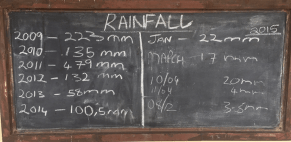 RAINFALL
2015
2009 - 223 mm
2010 - 135 mm
2011 - 479 mm
2012 - 132 mm
2013 - 58mm
2014 - 100,5mm
JAN - 22mm
MARCH - 17 mm
10/04 20mm
11/04 4mm
mm